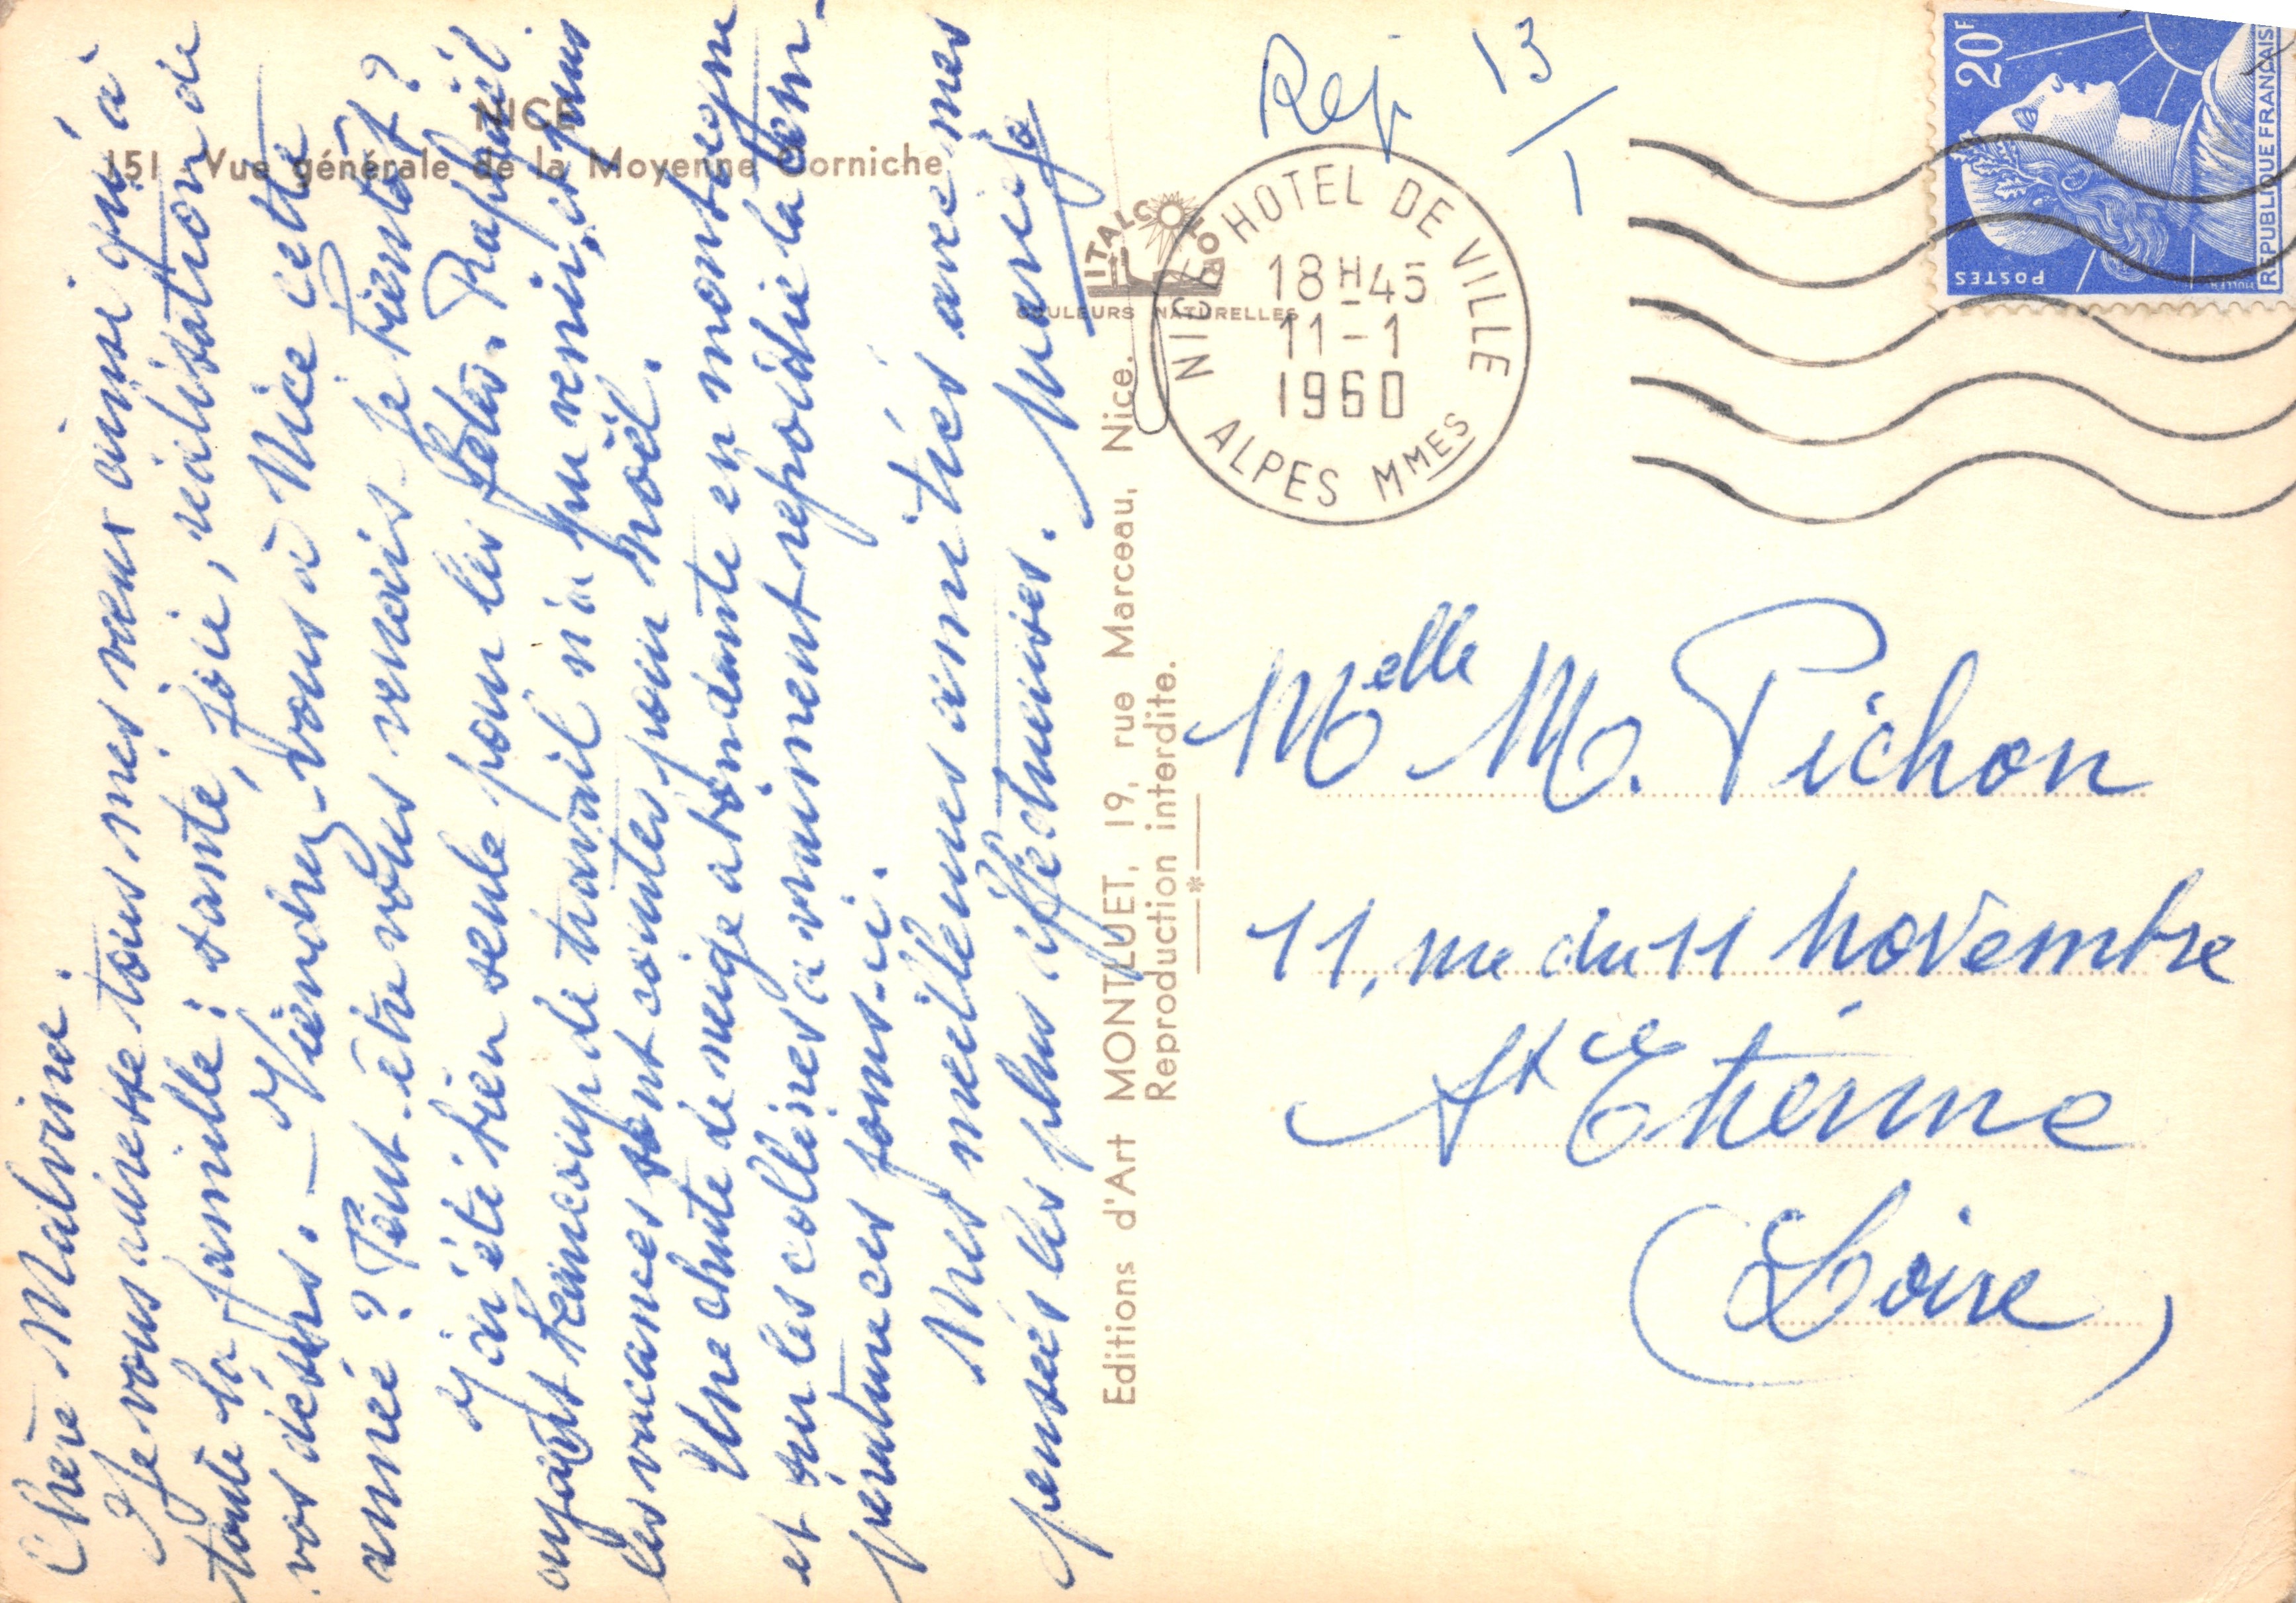 NICE
151 - Vue générale de la Moyenne Corniche
Chère Malvina.
Je vous adresse tous mes vœux ainsi qu'à
toute la famille : santé, joie, réalisation de
vos désirs. — Viendrez-vous à Nice cette
année ? Peut-être vous verrais-je bientôt ?
J'ai été bien seule pour les fêtes. Raphaël
ayant beaucoup de travail n'a pu venir, et puis
les vacances sont courtes pour Noël.
Une chute de neige abondante en montagne
et sur les collines a vraiment refroidie la tem-
pératures jours-ci.
Mes meilleures amitiés avec mes
pensées les plus affectueuses.
ITALCOLOR
COULEURS NATURELLES
Editions d'Art MONTLUET, 19, rue Marceau, Nice.
Reproduction interdite.
*
Rep 13/1
NICE HOTEL DE VILLE
18H45
11-1
1960
ALPES MMES
20F
POSTES
MULLER
REPUBLIQUE FRANÇAISE
Melle M. Pichon
11, rue du 11 Novembre
St Etienne
(Loire)